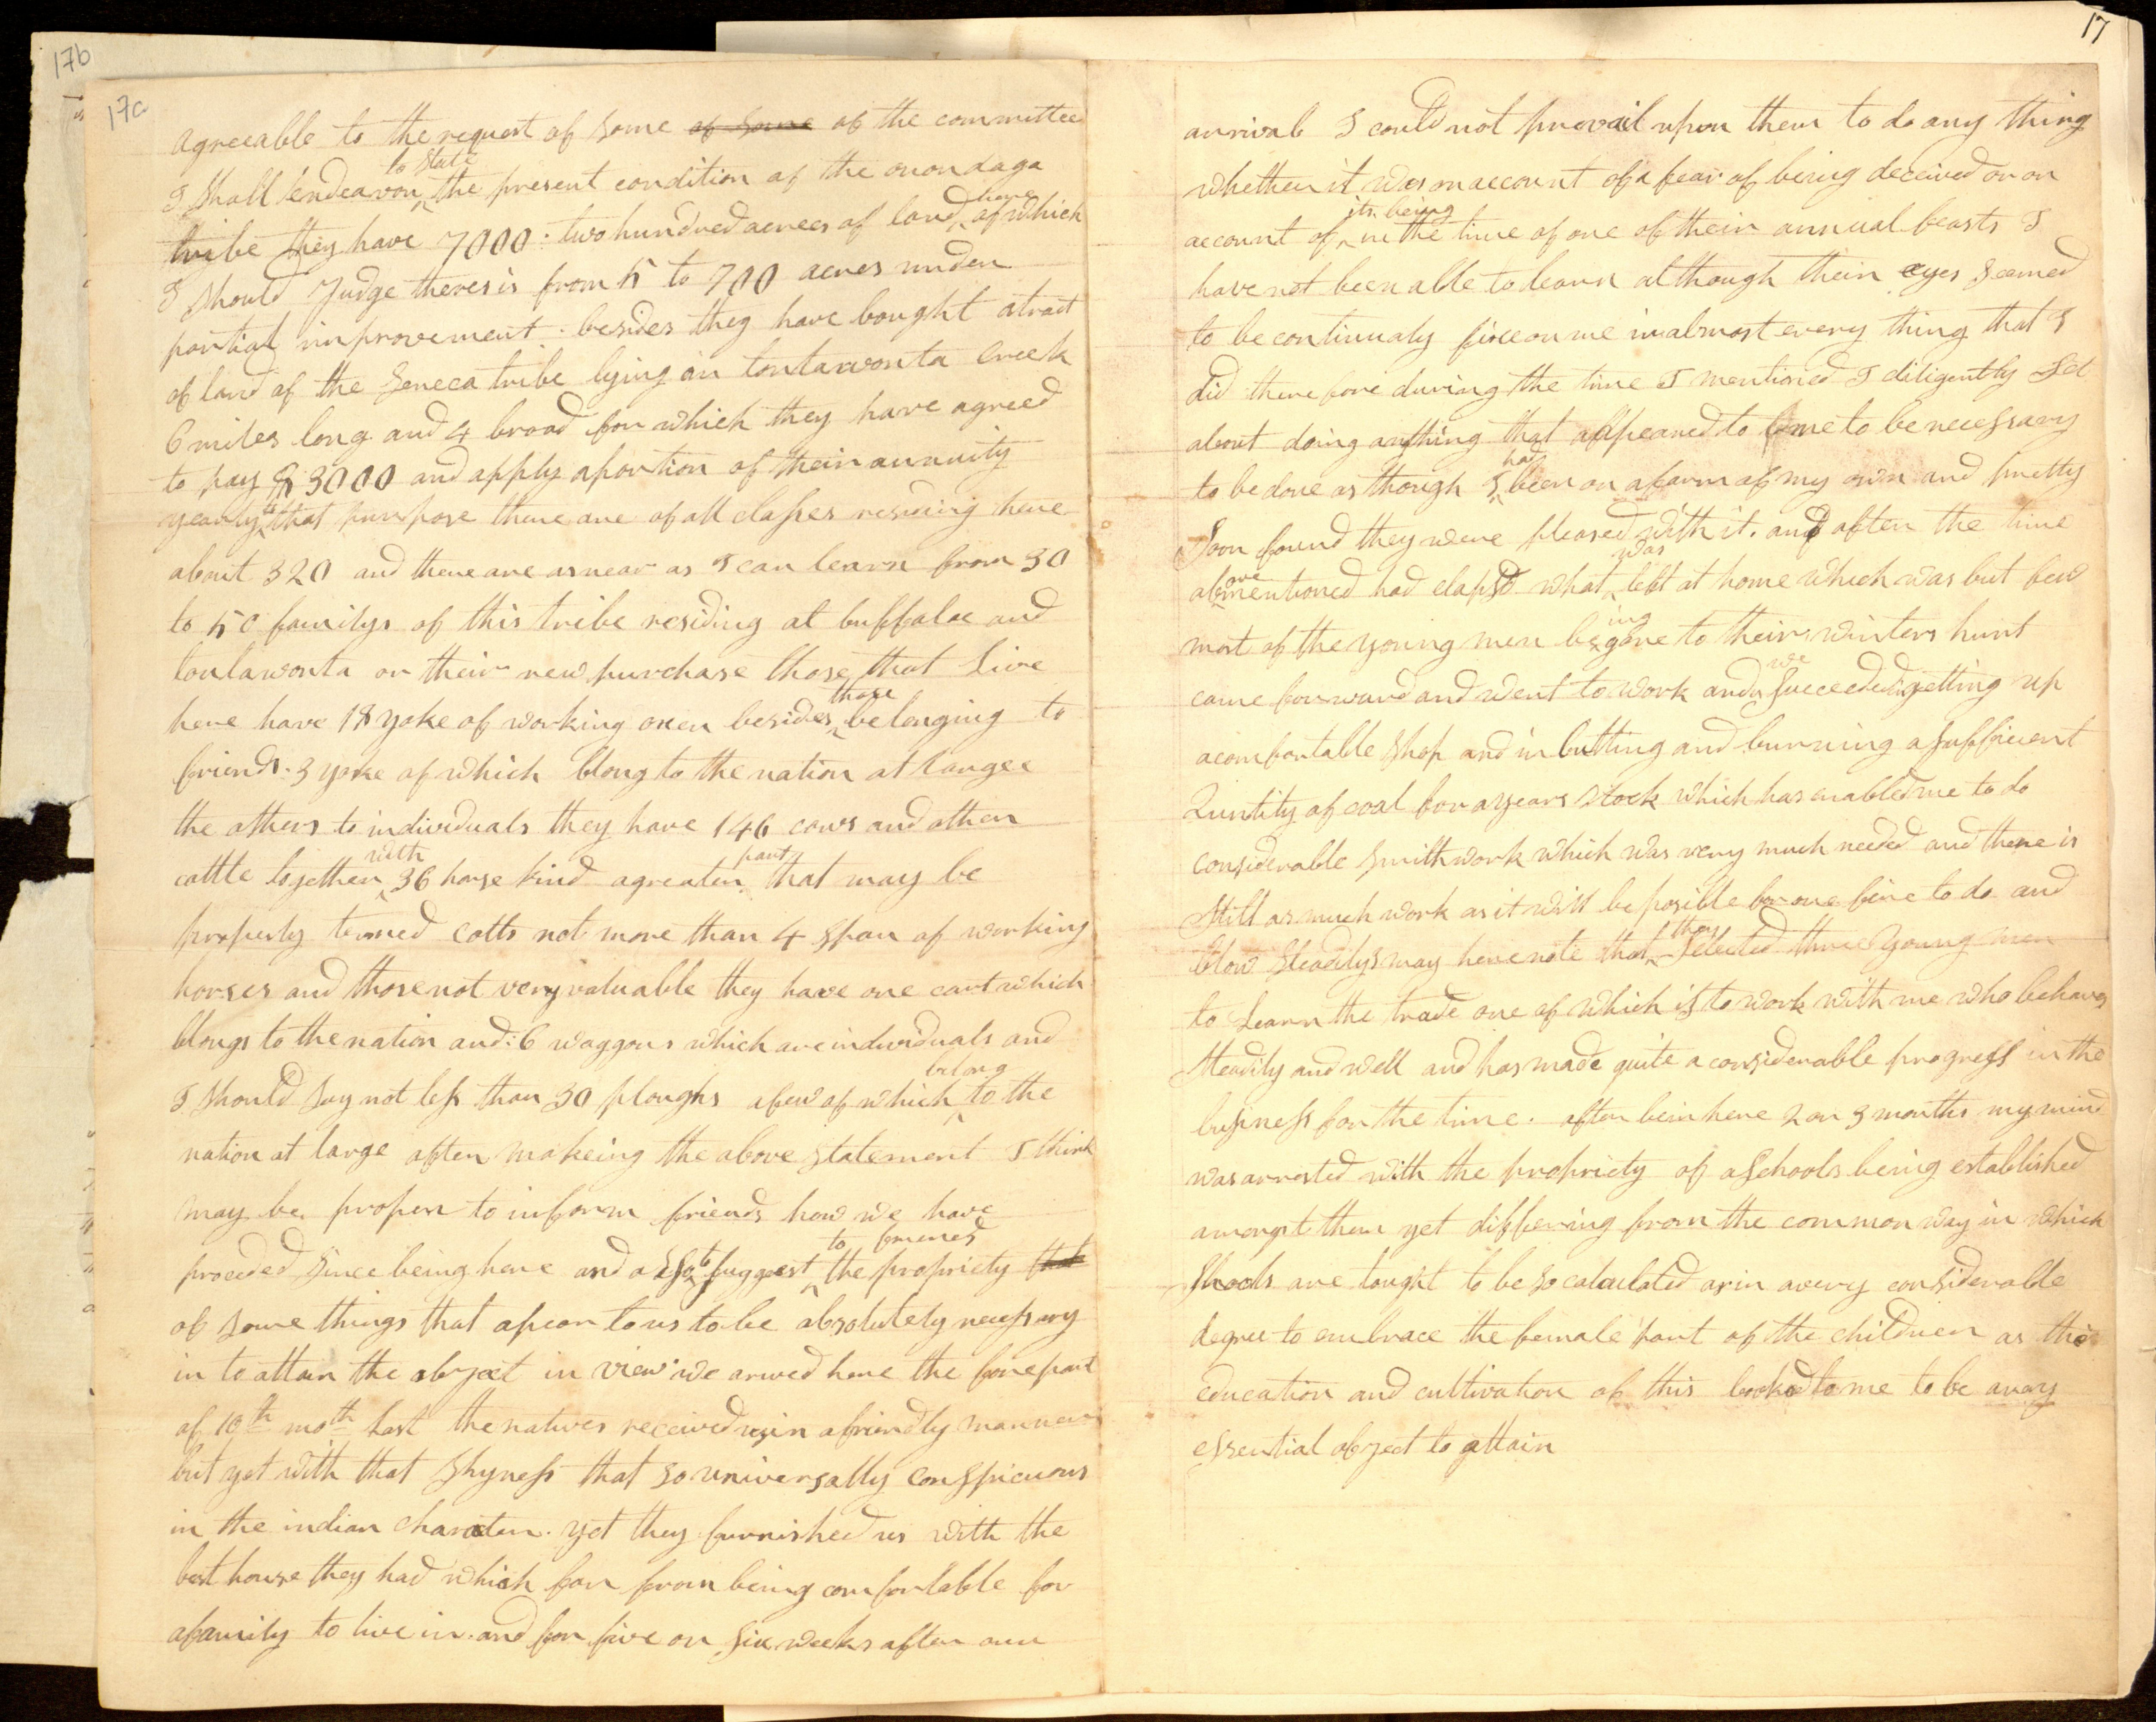 17b
17a
agreeable to the request of some of some of the committee
I shall endeavour to state the present condition of the onondaga
tribe they have 7000: two hundred acrees of land here of which
I should Judge theres is from 5 to 700 acres under
partial improvement. besides they have bought atract
of land of the Seneca tribe lying on tontawonta Creek
6 miles long and 4 broad for which they have agreed
to pay $ 3000 and apply aportion of their annuity
yearly to that purpose there are of all classes residing here
about 320 and there are as near as I can learn from 30
to 50 familys of this tribe residing at buffaloe and
tontawonta or their new purchase those that live
here have 18 yoke of working oxen besides those belonging to
friends. 3 yoke of which blong to the nation at largee
the others to individuals they have 146 cows and other
cattle together with 36 horse kind agreater part that may be
properly termed colts not more than 4 span of working
horses and those not very valuable they have one cart which
blongs to the nation and: 6 waggons which are individuals and
I should say not less than 30 ploughs afew of which belong to the
nation at large after makeing the above statement I think
may be proper to inform friends how we have
proceded since being here and also to suggest to friends the propriety that
of some things that apear to us to be absolutely necessary
in to attain the object in view we arived here the forepart
of 10th moth last the natives received us in afriendly manner
but yet with that shyness that so universally conspicuous
in the indian character. yet they furnished us with the
best house they had which far from being comfortable for
afamily to live in. and for five or six weeks after our
17
arrival I could not prevail upon them to do any thing
whether it was on account of a fear of being deceived or on
account of its being in the time of one of their annual feasts I
have not been able to learn although their eyes seemed
to be continualy fixe on me in almost every thing that I
did therefore during the time I mentioned I diligently Set
about doing anything that appeared to me to be necessary
to be done as though I had been on afarm of my own and pretty
Soon found they were pleased with it. and after the time
above mentioned had elapsd what was left at home which was but few
most of the young men being gone to their winters hunt
came forward and went to work and we succeeded in getting up
acomfortable shop and in cutting and burning a sufficient
Quntity of coal for ayears stock which has enabled me to do
considerable smithwork which was very much needed and there is
still as much work as it will be posible for one fire to do and
blow steadily I may here note that they selected three young men
to Learn the trade one of which is to work with me who behaves
steadily and well and has made quite a considerable progress in the
business for the time. after bein here 2 or 3 months my mind
was arrested with the propriety of aschools being established
amongst them yet differing from the common way in which
schools are tought to be so calculated as in avery considerable
degree to embrace the female part of the children as the
education and cultivation of this looked to me to be avary
essential object to attain